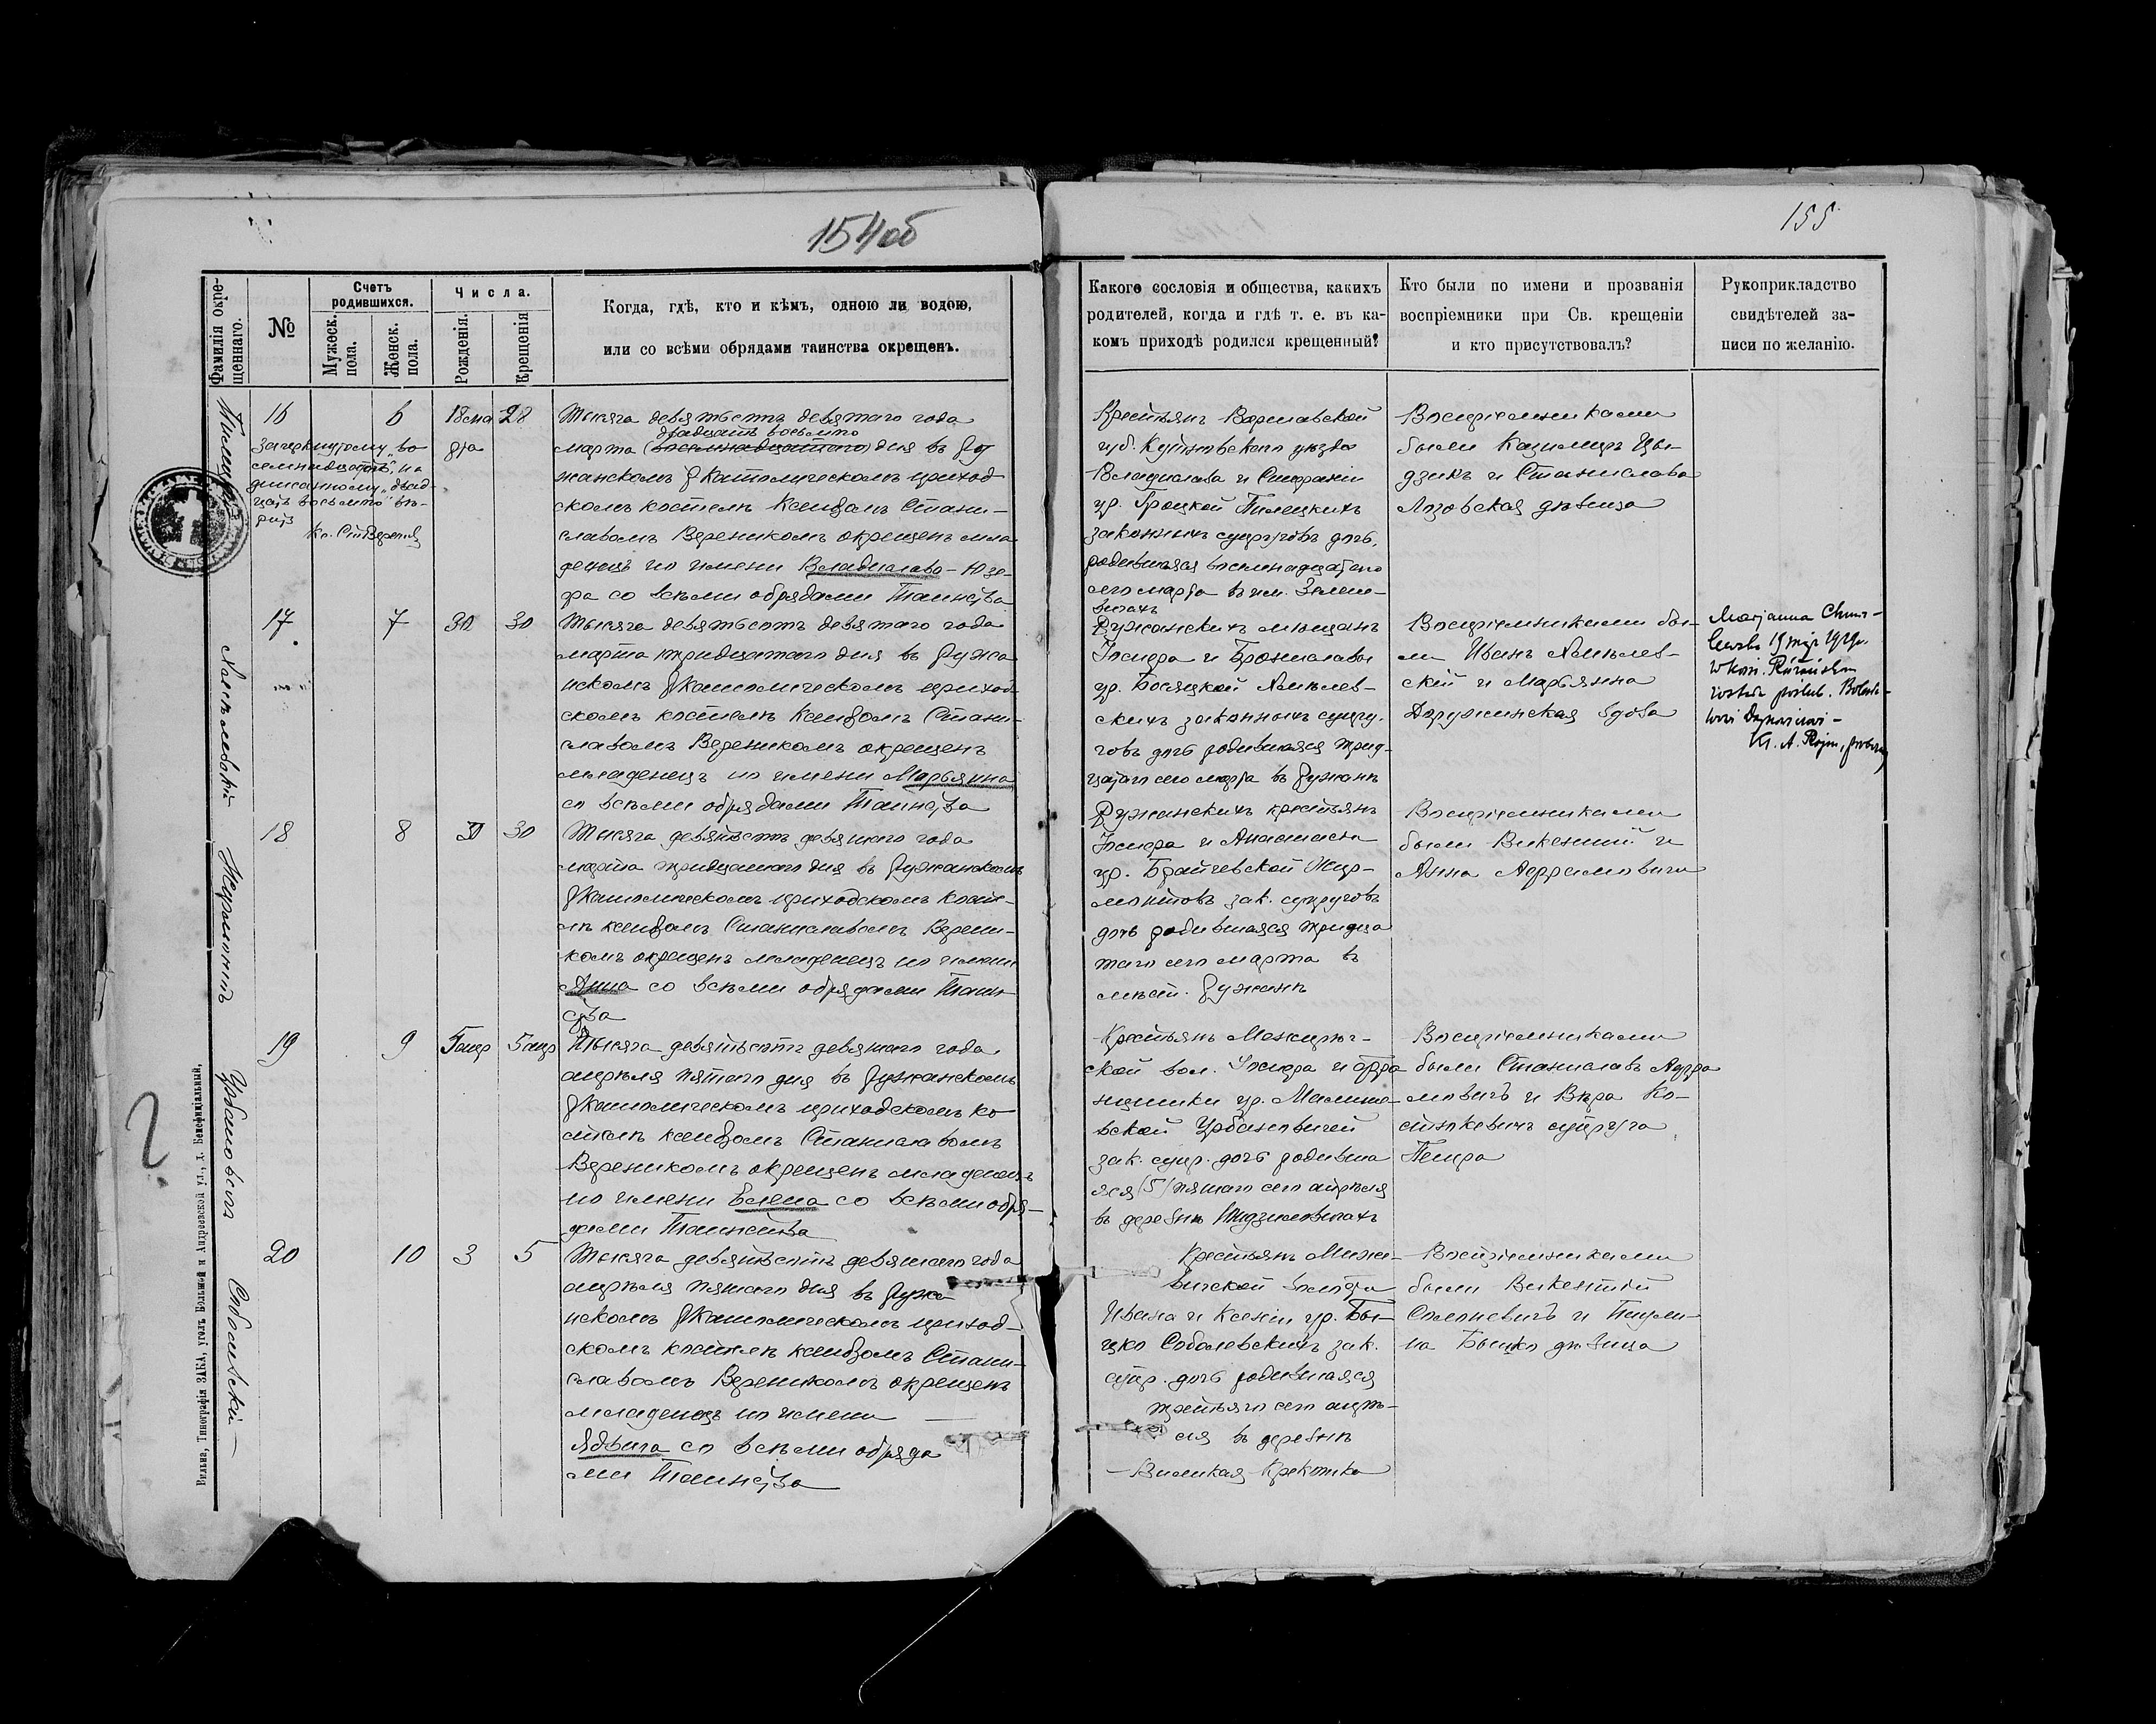 154об
155
Фамилія окрещеннаго.
№
Счетъ родившихся.
Мужеск. пола.
Женск. пола.
Числа.
Рожденія.
Крещенія
Когда, гдѣ, кто и кѣмъ, одною ли водою,
или со всѣми обрядами таинства окрещенъ.
Какого сословія и общества, какихъ
родителей, когда и гдѣ т. е. въ ка-
комъ приходѣ родился крещенный?
Кто были по имени и прозванія
воспріемники при Св. крещеніи
и кто присутствовалъ?
Рукоприкладство
свидѣтелей за-
писи по желанію.
16
6
18
28
Зачеркнутому „во
семнадцатъ", на
дписанному „двад-
цать восьмого" вѣ-
рить
Тысяча девятьсотъ девятаго года
двадцать восьмого
марта (восемнадцатаго) дня въ Ру
жанскомъ Ркатолическомъ приход
скомъ костелѣ Ксендзомъ Стани-
славомъ Вереникомъ окрещенъ мла
денецъ по имени Владислава-Юзе-
фа со всѣми обрядами Таинства
Крестьянъ Варшавской
губ. Кутновскаго уѣзда
Владислава и Стефаніи
ур. Троцкой Пилецкихъ
законныхъ супруговъ дочь,
родившаяся восемнадцатаго
сего марта въ им.
Воспріемниками
были Казимиръ Цы-
дзикъ и Станислава
Лозовская дѣвица
17
7
30
30
Тысяча девятьсотъ девятаго года
марта тридцатаго дня въ Ружа
нскомъ Ркатолическомъ приход
скомъ костелѣ Ксендзомъ Стани-
славомъ Вереникомъ окрещенъ
младенецъ по имени Марьянна
со всѣми обрядами Таинства
Ружанскихъ мѣщанъ
Іосифа и Брониславы
ур. Босяцкой Хмѣлев-
скихъ законныхъ супру-
говъ дочь родившаяся трид-
цатаго сего марта въ Ружанѣ
Воспріемниками бы-
ли Иванъ Хмѣлев-
скій и Марьянна
Доружинская вдова
Marjanna Chmie-
lewska 19 maja 1929 r.
w kośc. Różańskim
18
8
30
30
Тысяча девятьсотъ девятаго года
марта тридцатаго дня въ Ружанскомъ
Ркатолическомъ приходскомъ косте-
лѣ ксендзомъ Станиславомъ Верени-
комъ окрещенъ младенецъ по имени
Анна со всѣми обрядами Таин-
ства
Ружанскихъ крестьянъ
Іосифа и Анастасіи
ур. Брайчевской Жир-
монтовъ зак. супруговъ
дочь родившаяся тридца
таго сего марта въ
мѣст. Ружанѣ
Воспріемниками
были Викентій и
Анна Адамовичи
19
9
5 апр
5 апр
Тысяча девятьсотъ девятаго года
апрѣля пятаго дня въ Ружанскомъ
Ркатолическомъ приходскомъ ко
стелѣ ксендзомъ Станиславомъ
Вереникомъ окрещенъ младенецъ
по имени Елена со всѣми обря-
дами Таинства
Урбановичъ
Крестьянъ Межирѣч-
ской вол. Іосифа и Фра
нцишки ур. Малино-
вской Урбановичей
зак. супр. дочь родивша
яся (5) пятаго сего апрѣля
въ деревнѣ
Воспріемниками
были Станиславъ Ада
мовичъ и Вѣра Ко-
стюкевичъ супруга
Петра
20
10
3
5
Тысяча девятьсотъ девятаго года
апрѣля пятаго дня въ Ружа
нскомъ Ркатолическомъ приход-
скомъ костелѣ ксендзомъ Стани-
славомъ Вереникомъ окрещенъ
младенецъ по имени
Ядвига со всѣми обряда
ми Таинства
Соболевскій
Крестьянъ
Ивана и Ксеніи ур. Бы-
цко Соболевскихъ зак.
супр. дочь родившаяся
третьяго сего апрѣ-
ля въ деревнѣ
Великая Кракотка
Воспріемниками
были Викентій
Солоневичъ и Паули-
на Быцко дѣвица
Вильна, Типографія ЗАКА, уголъ Большой и Андреевской ул., д. Бенефиціальный.